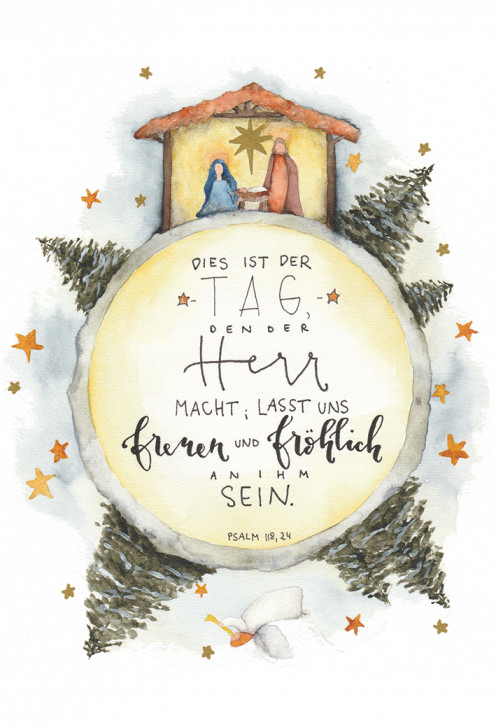 DIES IST DER
TAG,
DEN DER
Herr
MACHT; LASST UNS
freuen UND fröhlich
AN IHM
SEIN.
PSALM 118, 24